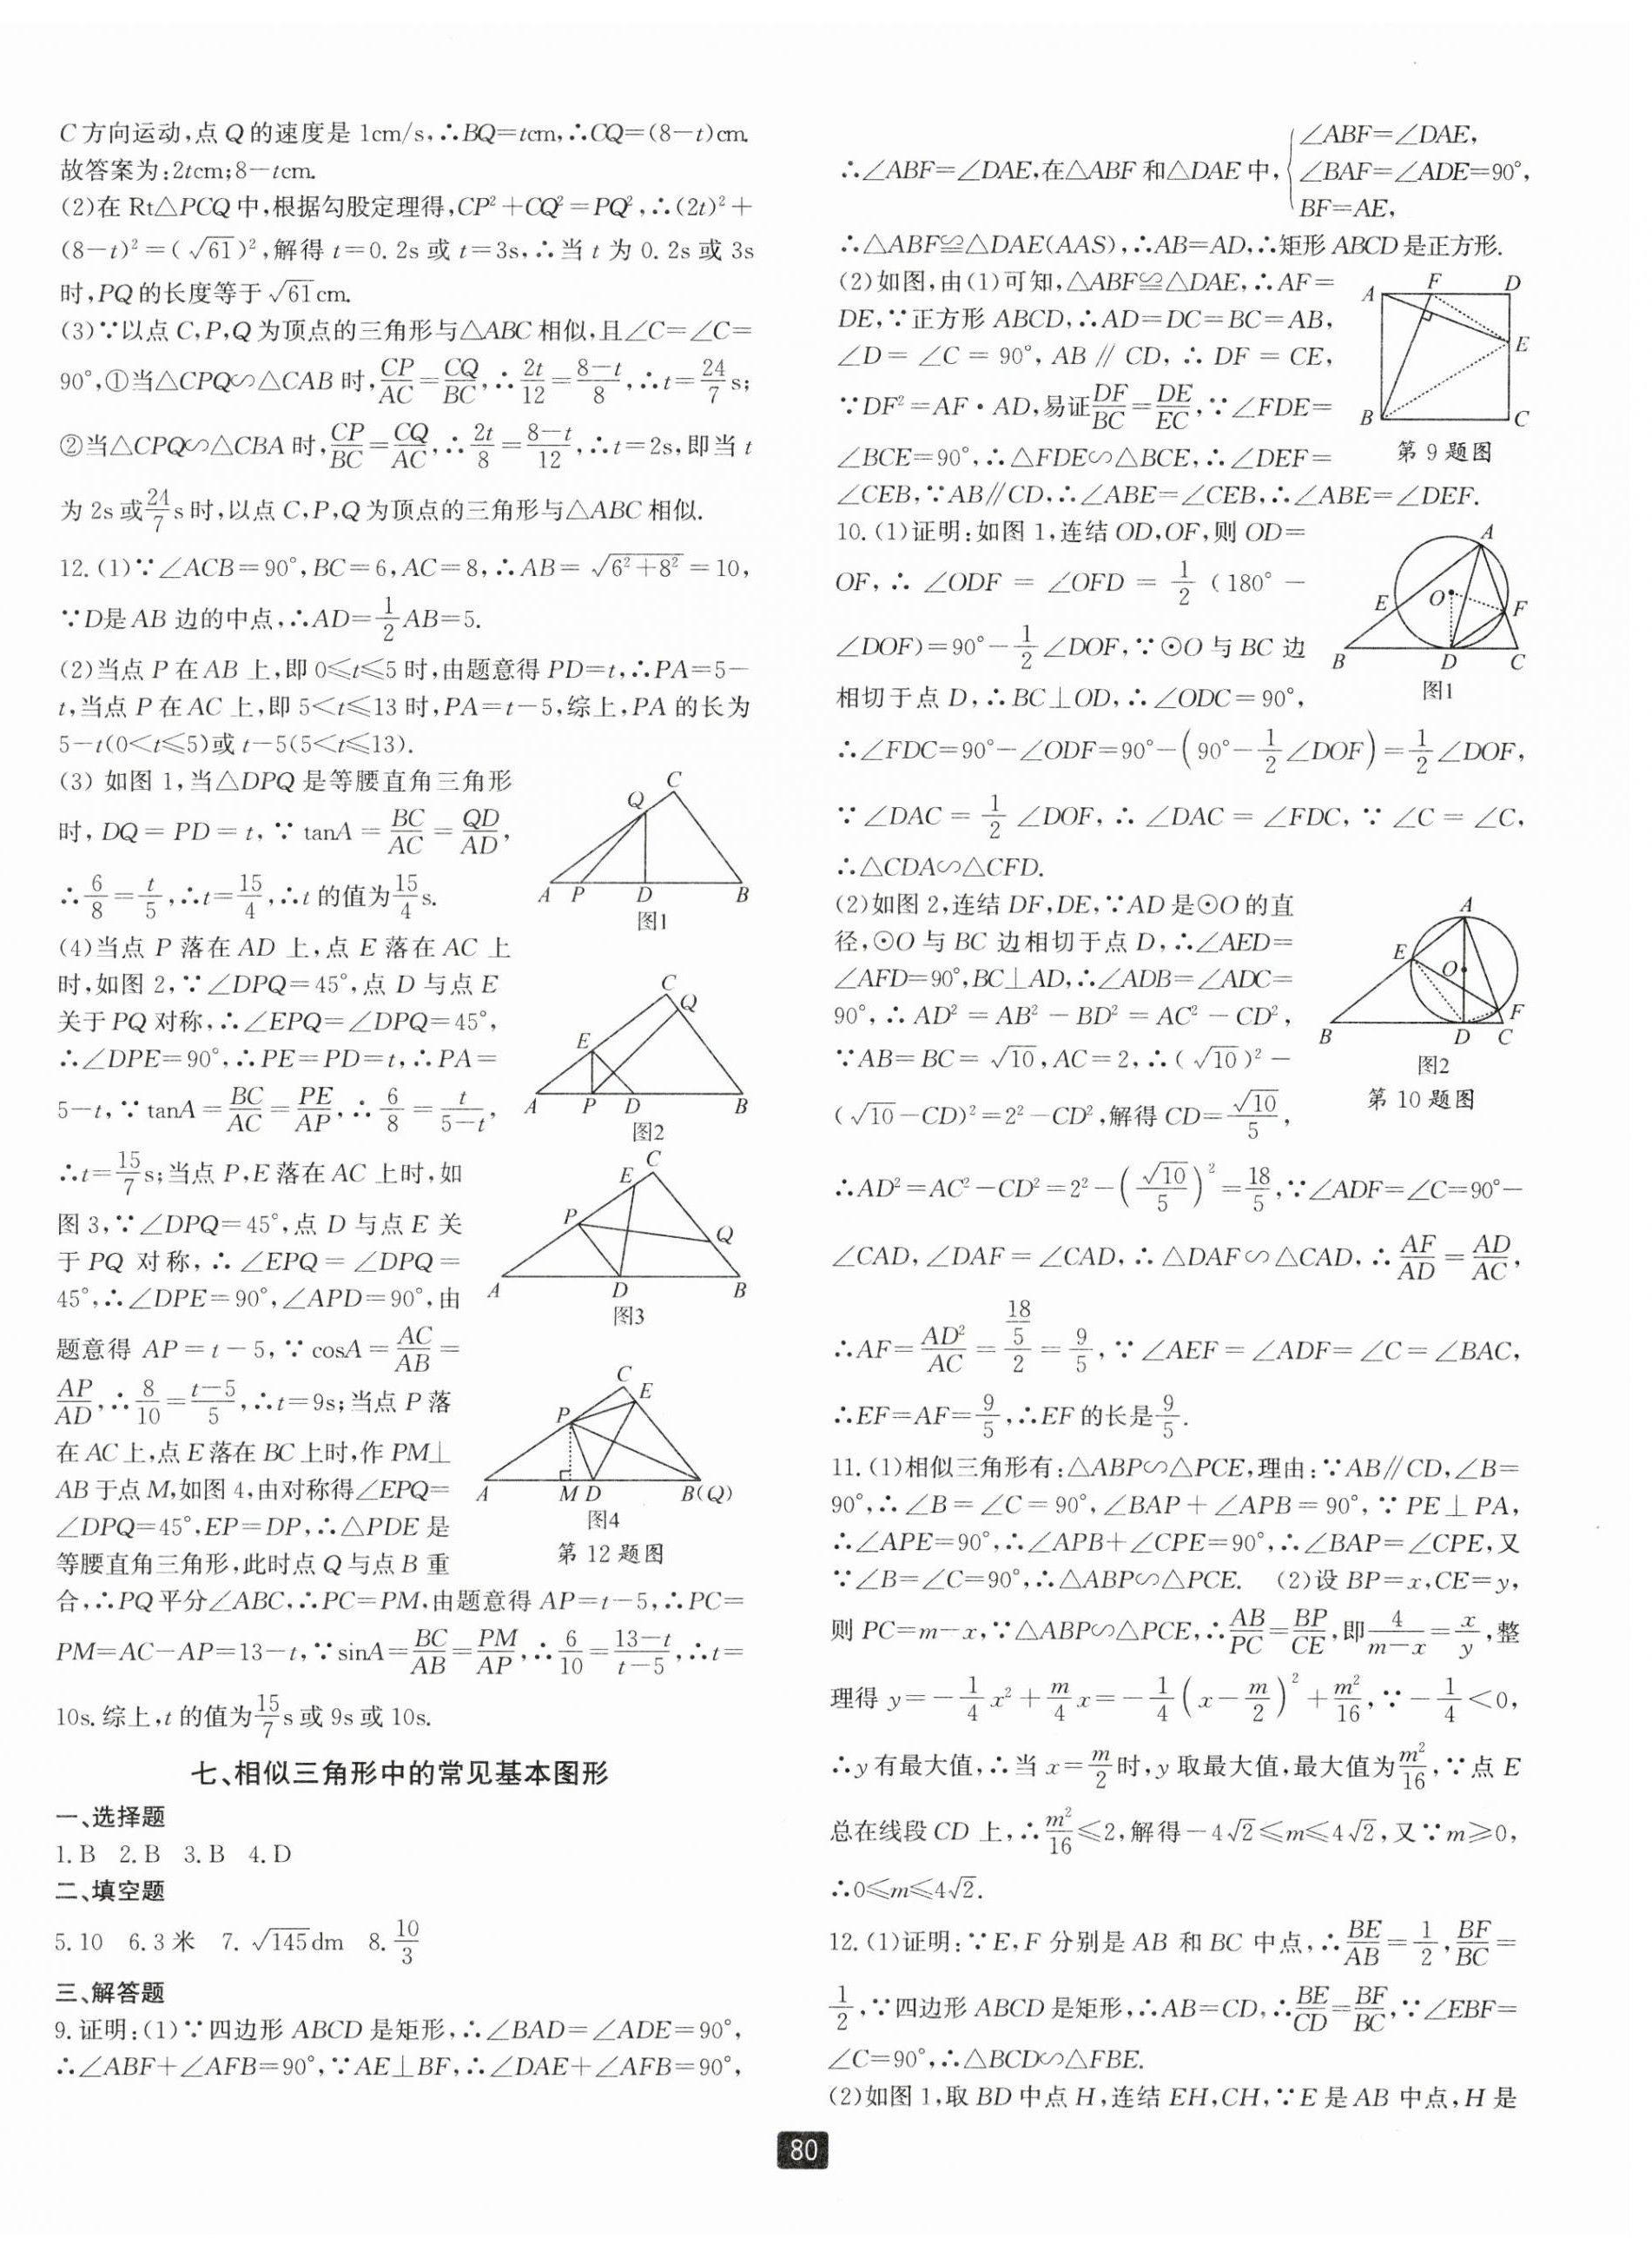 C方向运动,点Q的速度是1cm/s,∴BQ=tcm,∴CQ=(8-t)cm.
故答案为:2tcm;8-tcm.
(2)在Rt△PCQ中,根据勾股定理得,CP²+CQ²=PQ²,∴(2t)²+
(8-t)²=(√61)²,解得t=0.2s或t=3s,∴当t为0.2s或3s
时,PQ的长度等于√61cm.
(3)∵以点C,P,Q为顶点的三角形与△ABC相似,且∠C=∠C=
90°,①当△CPQ∽△CAB时,CP/AC=CQ/BC,∴2t/12=(8-t)/8,∴t=24/7s;
②当△CPQ∽△CBA时,CP/BC=CQ/AC,∴2t/8=(8-t)/12,∴t=2s,即当t
为2s或24/7s时,以点C,P,Q为顶点的三角形与△ABC相似.
12.(1)∵∠ACB=90°,BC=6,AC=8,∴AB=√(6²+8²)=10,
∵D是AB边的中点,∴AD=1/2AB=5.
(2)当点P在AB上,即0≤t≤5时,由题意得PD=t,∴PA=5-
t,当点P在AC上,即5<t≤13时,PA=t-5,综上,PA的长为
5-t(0<t≤5)或t-5(5<t≤13).
(3)如图1,当△DPQ是等腰直角三角形
时,DQ=PD=t,∵tanA=BC/AC=QD/AD,
∴6/8=t/5,∴t=15/4,∴t的值为15/4s.
(4)当点P落在AD上,点E落在AC上
时,如图2,∵∠DPQ=45°,点D与点E
关于PQ对称,∴∠EPQ=∠DPQ=45°,
∴∠DPE=90°,∴PE=PD=t,∴PA=
5-t,∵tanA=BC/AC=PE/AP,∴6/8=t/(5-t),
∴t=15/7s;当点P,E落在AC上时,如
图3,∵∠DPQ=45°,点D与点E关
于PQ对称,∴∠EPQ=∠DPQ=
45°,∴∠DPE=90°,∠APD=90°,由
题意得AP=t-5,∵cosA=AC/AB=
AP/AD,∴8/10=(t-5)/5,∴t=9s;当点P落
在AC上,点E落在BC上时,作PM⊥
AB于点M,如图4,由对称得∠EPQ=
∠DPQ=45°,EP=DP,∴△PDE是
等腰直角三角形,此时点Q与点B重
合,∴PQ平分∠ABC,∴PC=PM,由题意得AP=t-5,∴PC=
PM=AC-AP=13-t,∵sinA=BC/AB=PM/AP,∴6/10=(13-t)/(t-5),∴t=
10s.综上,t的值为15/7s或9s或10s.
C
Q
A P D B
图1
C
Q
E
A P D B
图2
C
E
P
Q
A D B
图3
C
E
P
A M D B(Q)
图4
第12题图
七、相似三角形中的常见基本图形
一、选择题
1.B 2.B 3.B 4.D
二、填空题
5.10 6.3米 7.√145dm 8.10/3
三、解答题
9.证明:(1)∵四边形ABCD是矩形,∴∠BAD=∠ADE=90°,
∴∠ABF+∠AFB=90°,∵AE⊥BF,∴∠DAE+∠AFB=90°,
∠ABF=∠DAE,
∴∠ABF=∠DAE,在△ABF和△DAE中,{∠BAF=∠ADE=90°,
BF=AE,
∴△ABF≌△DAE(AAS),∴AB=AD,∴矩形ABCD是正方形.
(2)如图,由(1)可知,△ABF≌△DAE,∴AF=
DE,∵正方形ABCD,∴AD=DC=BC=AB,
∠D=∠C=90°,AB∥CD,∴DF=CE,
∵DF²=AF·AD,易证DF/BC=DE/EC,∵∠FDE=
∠BCE=90°,∴△FDE∽△BCE,∴∠DEF=
∠CEB,∵AB∥CD,∴∠ABE=∠CEB,∴∠ABE=∠DEF.
A F D
E
B C
第9题图
10.(1)证明:如图1,连结OD,OF,则OD=
OF,∴∠ODF=∠OFD=1/2(180°-
∠DOF)=90°-1/2∠DOF,∵⊙O与BC边
相切于点D,∴BC⊥OD,∴∠ODC=90°,
∴∠FDC=90°-∠ODF=90°-(90°-1/2∠DOF)=1/2∠DOF,
∵∠DAC=1/2∠DOF,∴∠DAC=∠FDC,∵∠C=∠C,
∴△CDA∽△CFD.
A
E O F
B D C
图1
(2)如图2,连结DF,DE,∵AD是⊙O的直
径,⊙O与BC边相切于点D,∴∠AED=
∠AFD=90°,BC⊥AD,∴∠ADB=∠ADC=
90°,∴AD²=AB²-BD²=AC²-CD²,
∵AB=BC=√10,AC=2,∴(√10)²-
(√10-CD)²=2²-CD²,解得CD=√10/5,
∴AD²=AC²-CD²=2²-(√10/5)²=18/5,∵∠ADF=∠C=90°-
∠CAD,∠DAF=∠CAD,∴△DAF∽△CAD,∴AF/AD=AD/AC,
∴AF=AD²/AC=(18/5)/2=9/5,∵∠AEF=∠ADF=∠C=∠BAC,
∴EF=AF=9/5,∴EF的长是9/5.
A
E
O
F
B D C
图2
第10题图
11.(1)相似三角形有:△ABP∽△PCE,理由:∵AB∥CD,∠B=
90°,∴∠B=∠C=90°,∠BAP+∠APB=90°,∵PE⊥PA,
∴∠APE=90°,∴∠APB+∠CPE=90°,∴∠BAP=∠CPE,又
∵∠B=∠C=90°,∴△ABP∽△PCE. (2)设BP=x,CE=y,
则PC=m-x,∵△ABP∽△PCE,∴AB/PC=BP/CE,即4/(m-x)=x/y,整
理得y=-1/4x²+m/4x=-1/4(x-m/2)²+m²/16,∵-1/4<0,
∴y有最大值,∴当x=m/2时,y取最大值,最大值为m²/16,∵点E
总在线段CD上,∴m²/16≤2,解得-4√2≤m≤4√2,又∵m≥0,
∴0≤m≤4√2.
12.(1)证明:∵E,F分别是AB和BC中点,∴BE/AB=1/2,BF/BC=
1/2,∵四边形ABCD是矩形,∴AB=CD,∴BE/CD=BF/BC,∵∠EBF=
∠C=90°,∴△BCD∽△FBE.
(2)如图1,取BD中点H,连结EH,CH,∵E是AB中点,H是
80